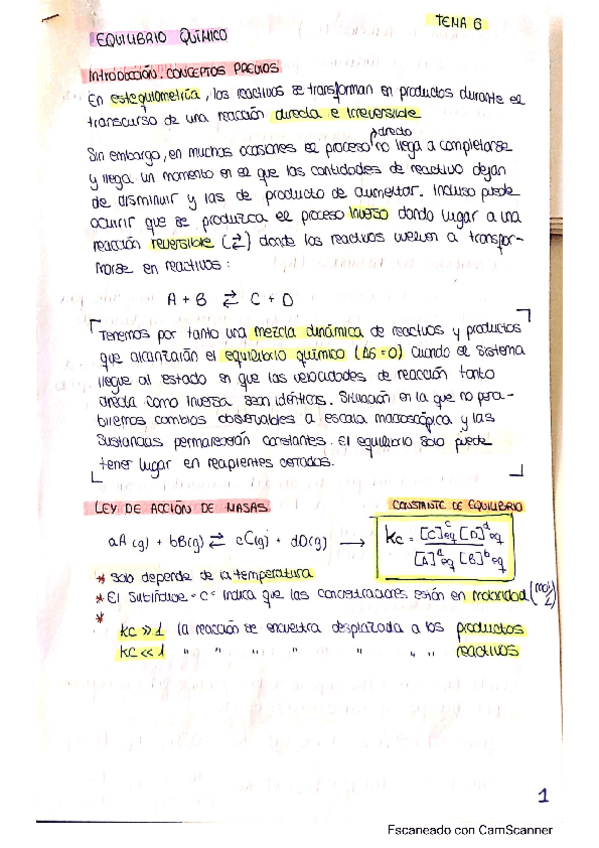 TEMA 6
EQUILIBRIO QUÍMICO
Introducción. CONCEPTOS PREVIOS
En estequiometría, los reactivos se transforman en productos durante el
transcurso de una reacción directa e irreversible
directo
Sin embargo, en muchas ocasiones el proceso no llega a completarse
y llega un momento en el que las cantidades de reactivo dejan
de disminuir y las de producto de aumentar. Incluso puede
ocurrir que se produzca el proceso inverso dando lugar a una
reacción reversible (⇄) donde los reactivos vuelven a transfor-
marse en reactivos:
A + B ⇄ C + D
Tenemos por tanto una mezcla dinámica de reactivos y productos
que alcanzarán el equilibrio químico (ΔG=0) cuando el sistema
llegue al estado en que las velocidades de reacción tanto
directa como inversa sean idénticas. Situación en la que no perci-
biremos cambios observables a escala macroscópica y las
sustancias permanecerán constantes. El equilibrio solo puede
tener lugar en recipientes cerrados.
LEY DE ACCIÓN DE MASAS
CONSTANTE DE EQUILIBRIO
aA (g) + bB(g) ⇄ cC(g) + dD(g) → Kc = [C]^c eq [D]^d eq / [A]^a eq [B]^b eq
* Solo depende de la temperatura
* El subíndice "C" indica que las concentraciones están en molaridad (mol/L)
*
Kc >> 1 la reacción se encuentra desplazada a los productos
Kc << 1 " " " " " " " " reactivos
1
Escaneado con CamScanner